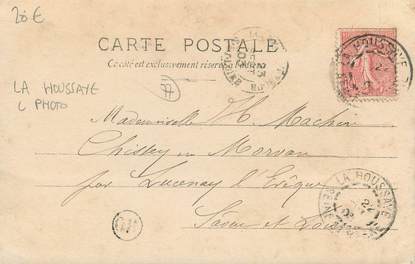 20 €
CARTE POSTALE
Ce côté est exclusivement réservé
LA HOUSSAYE
LA HOUSSAYE
C PHOTO
77
23
Mademoiselle H. Machin
Chissey en Morvan
par Lucenay l'Evêque
Saône et Loire
LA HOUSSAYE
SEINE